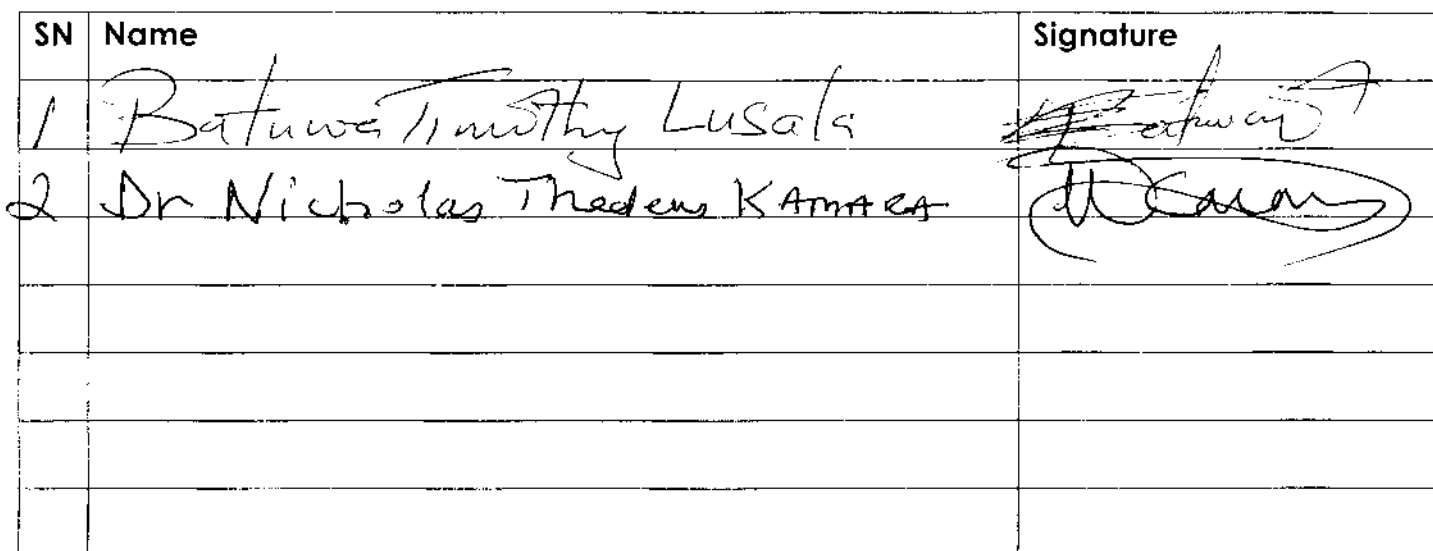 SN Name Signature
1 Batuwa Timothy Lusala
2 Dr Nicholas Thadeus KAMARA